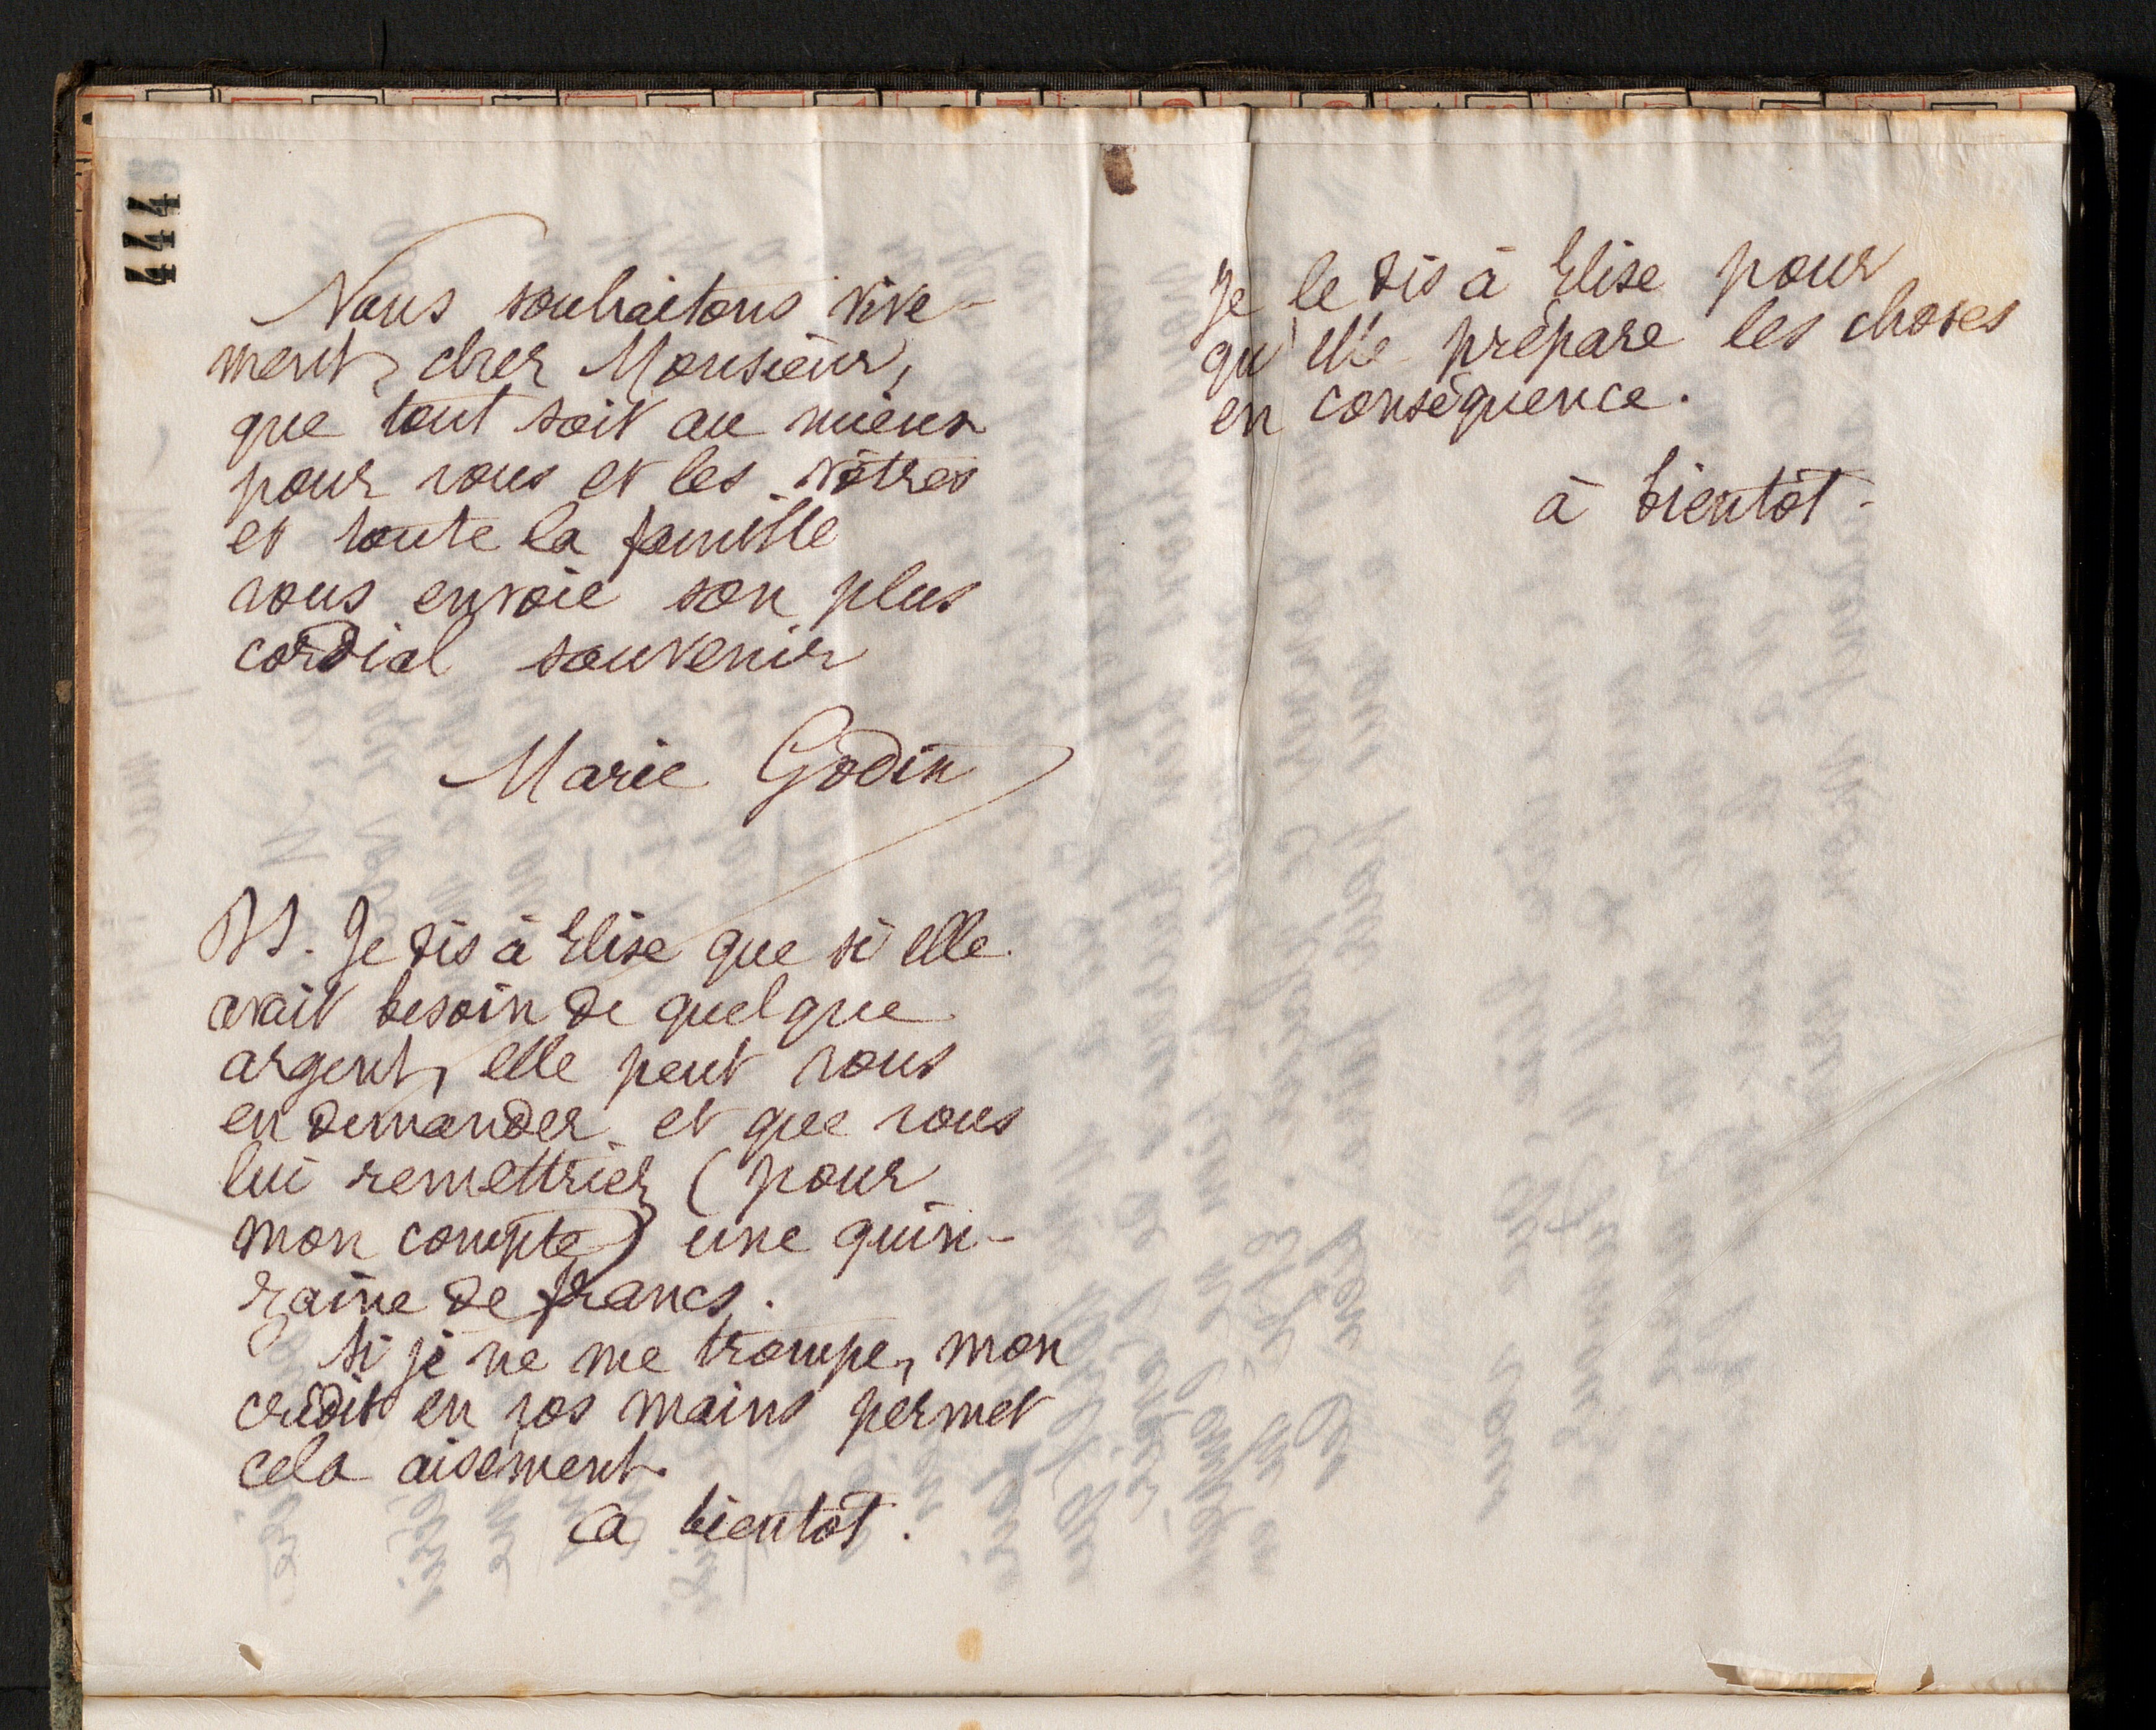 444
Nous souhaitons vive-
ment, cher Monsieur,
que tout soit au mieux
pour vous et les vôtres
et toute la famille
vous envoie son plus
cordial souvenir
Marie Godin
PS. Je dis à Elise que si elle
avait besoin de quelque
argent, elle peut vous
en demander et que vous
lui remettriez (pour
mon compte) une quin-
zaine de francs.
Si je ne me trompe, mon
crédit en vos mains permet
cela aisément.
a bientôt.
Je le dis à Elise pour
qu'elle prépare les choses
en conséquence.
à bientôt-